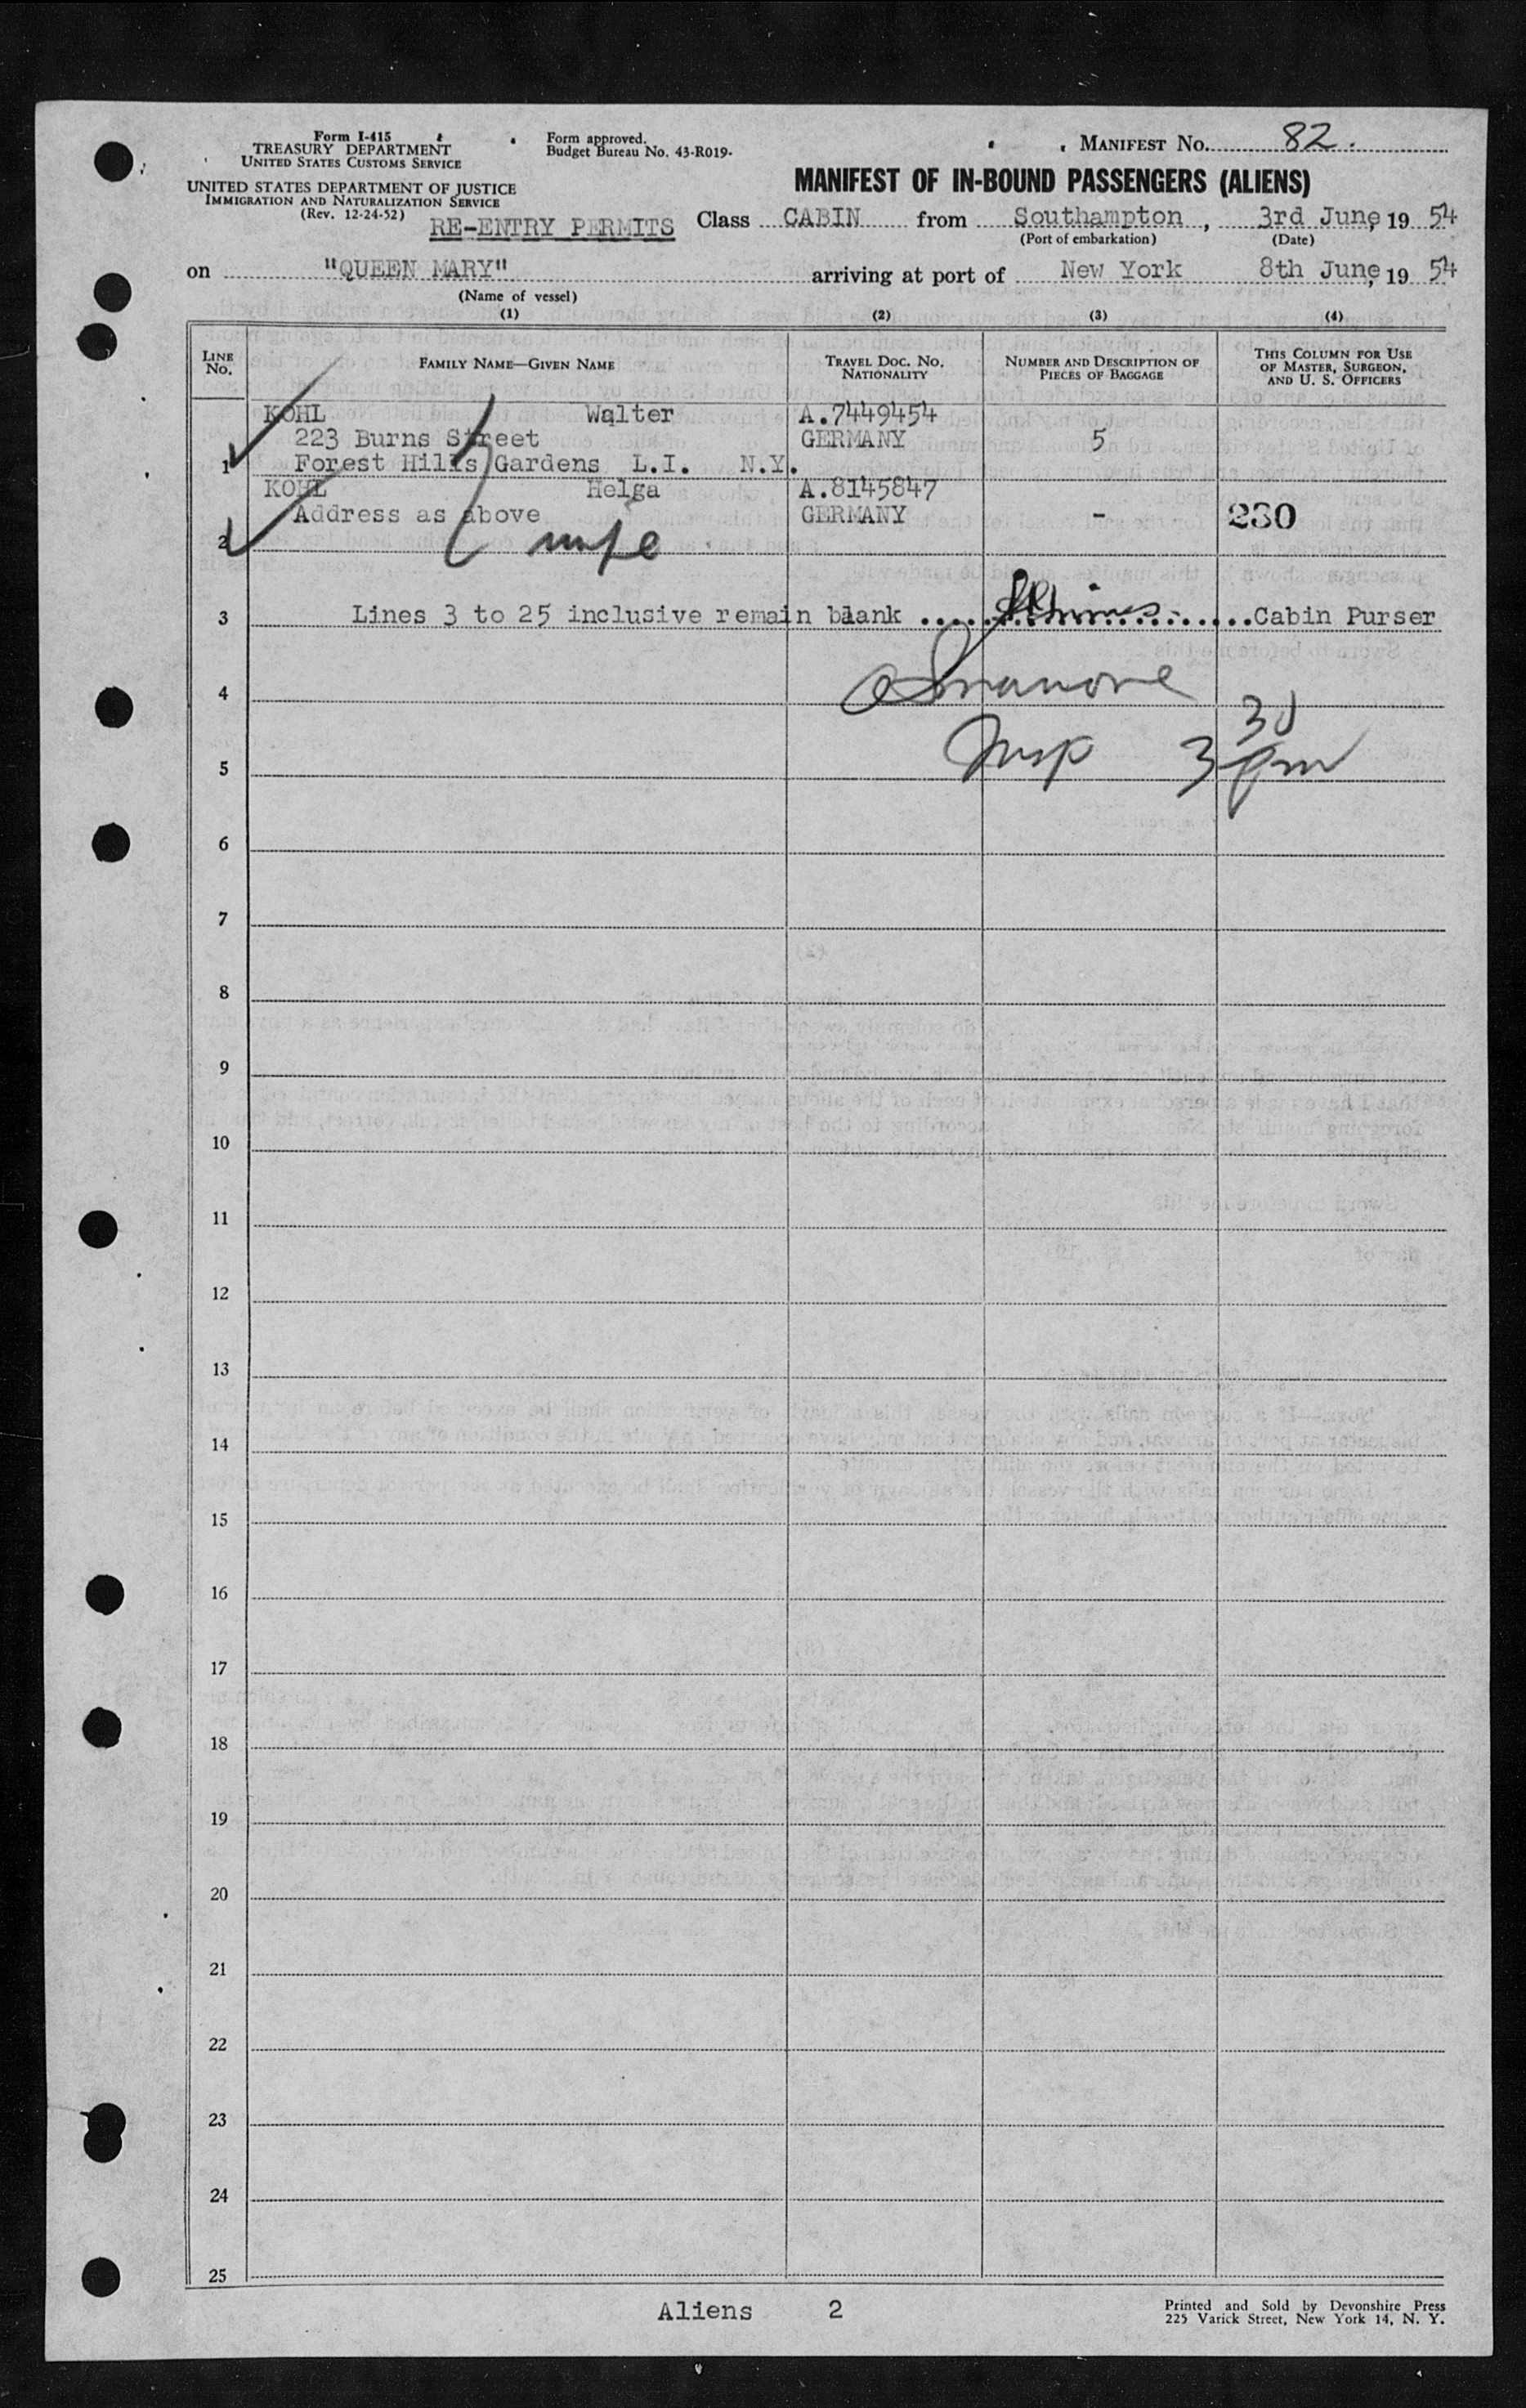 Form I-415
TREASURY DEPARTMENT
UNITED STATES CUSTOMS SERVICE
Form approved.
Budget Bureau No. 43-R019.
MANIFEST No. 82.
UNITED STATES DEPARTMENT OF JUSTICE
IMMIGRATION AND NATURALIZATION SERVICE
(Rev. 12-24-52)
MANIFEST OF IN-BOUND PASSENGERS (ALIENS)
RE-ENTRY PERMITS Class CABIN from Southampton, 3rd June, 19 54
(Port of embarkation) (Date)
on "QUEEN MARY" arriving at port of New York 8th June, 19 54
(Name of vessel)
(1) (2) (3) (4)
LINE No. FAMILY NAME—GIVEN NAME TRAVEL DOC. No. NATIONALITY NUMBER AND DESCRIPTION OF PIECES OF BAGGAGE THIS COLUMN FOR USE OF MASTER, SURGEON, AND U. S. OFFICERS
KOHL Walter A.7449454
223 Burns Street GERMANY 5
1 Forest Hills Gardens L.I. N.Y.
KOHL Helga A.8145847
Address as above GERMANY - 230
2 wife
3 Lines 3 to 25 inclusive remain blank Cabin Purser
4
Insp 3 30 pm
5
6
7
8
9
10
11
12
13
14
15
16
17
18
19
20
21
22
23
24
25
Aliens 2
Printed and Sold by Devonshire Press
225 Varick Street, New York 14, N. Y.